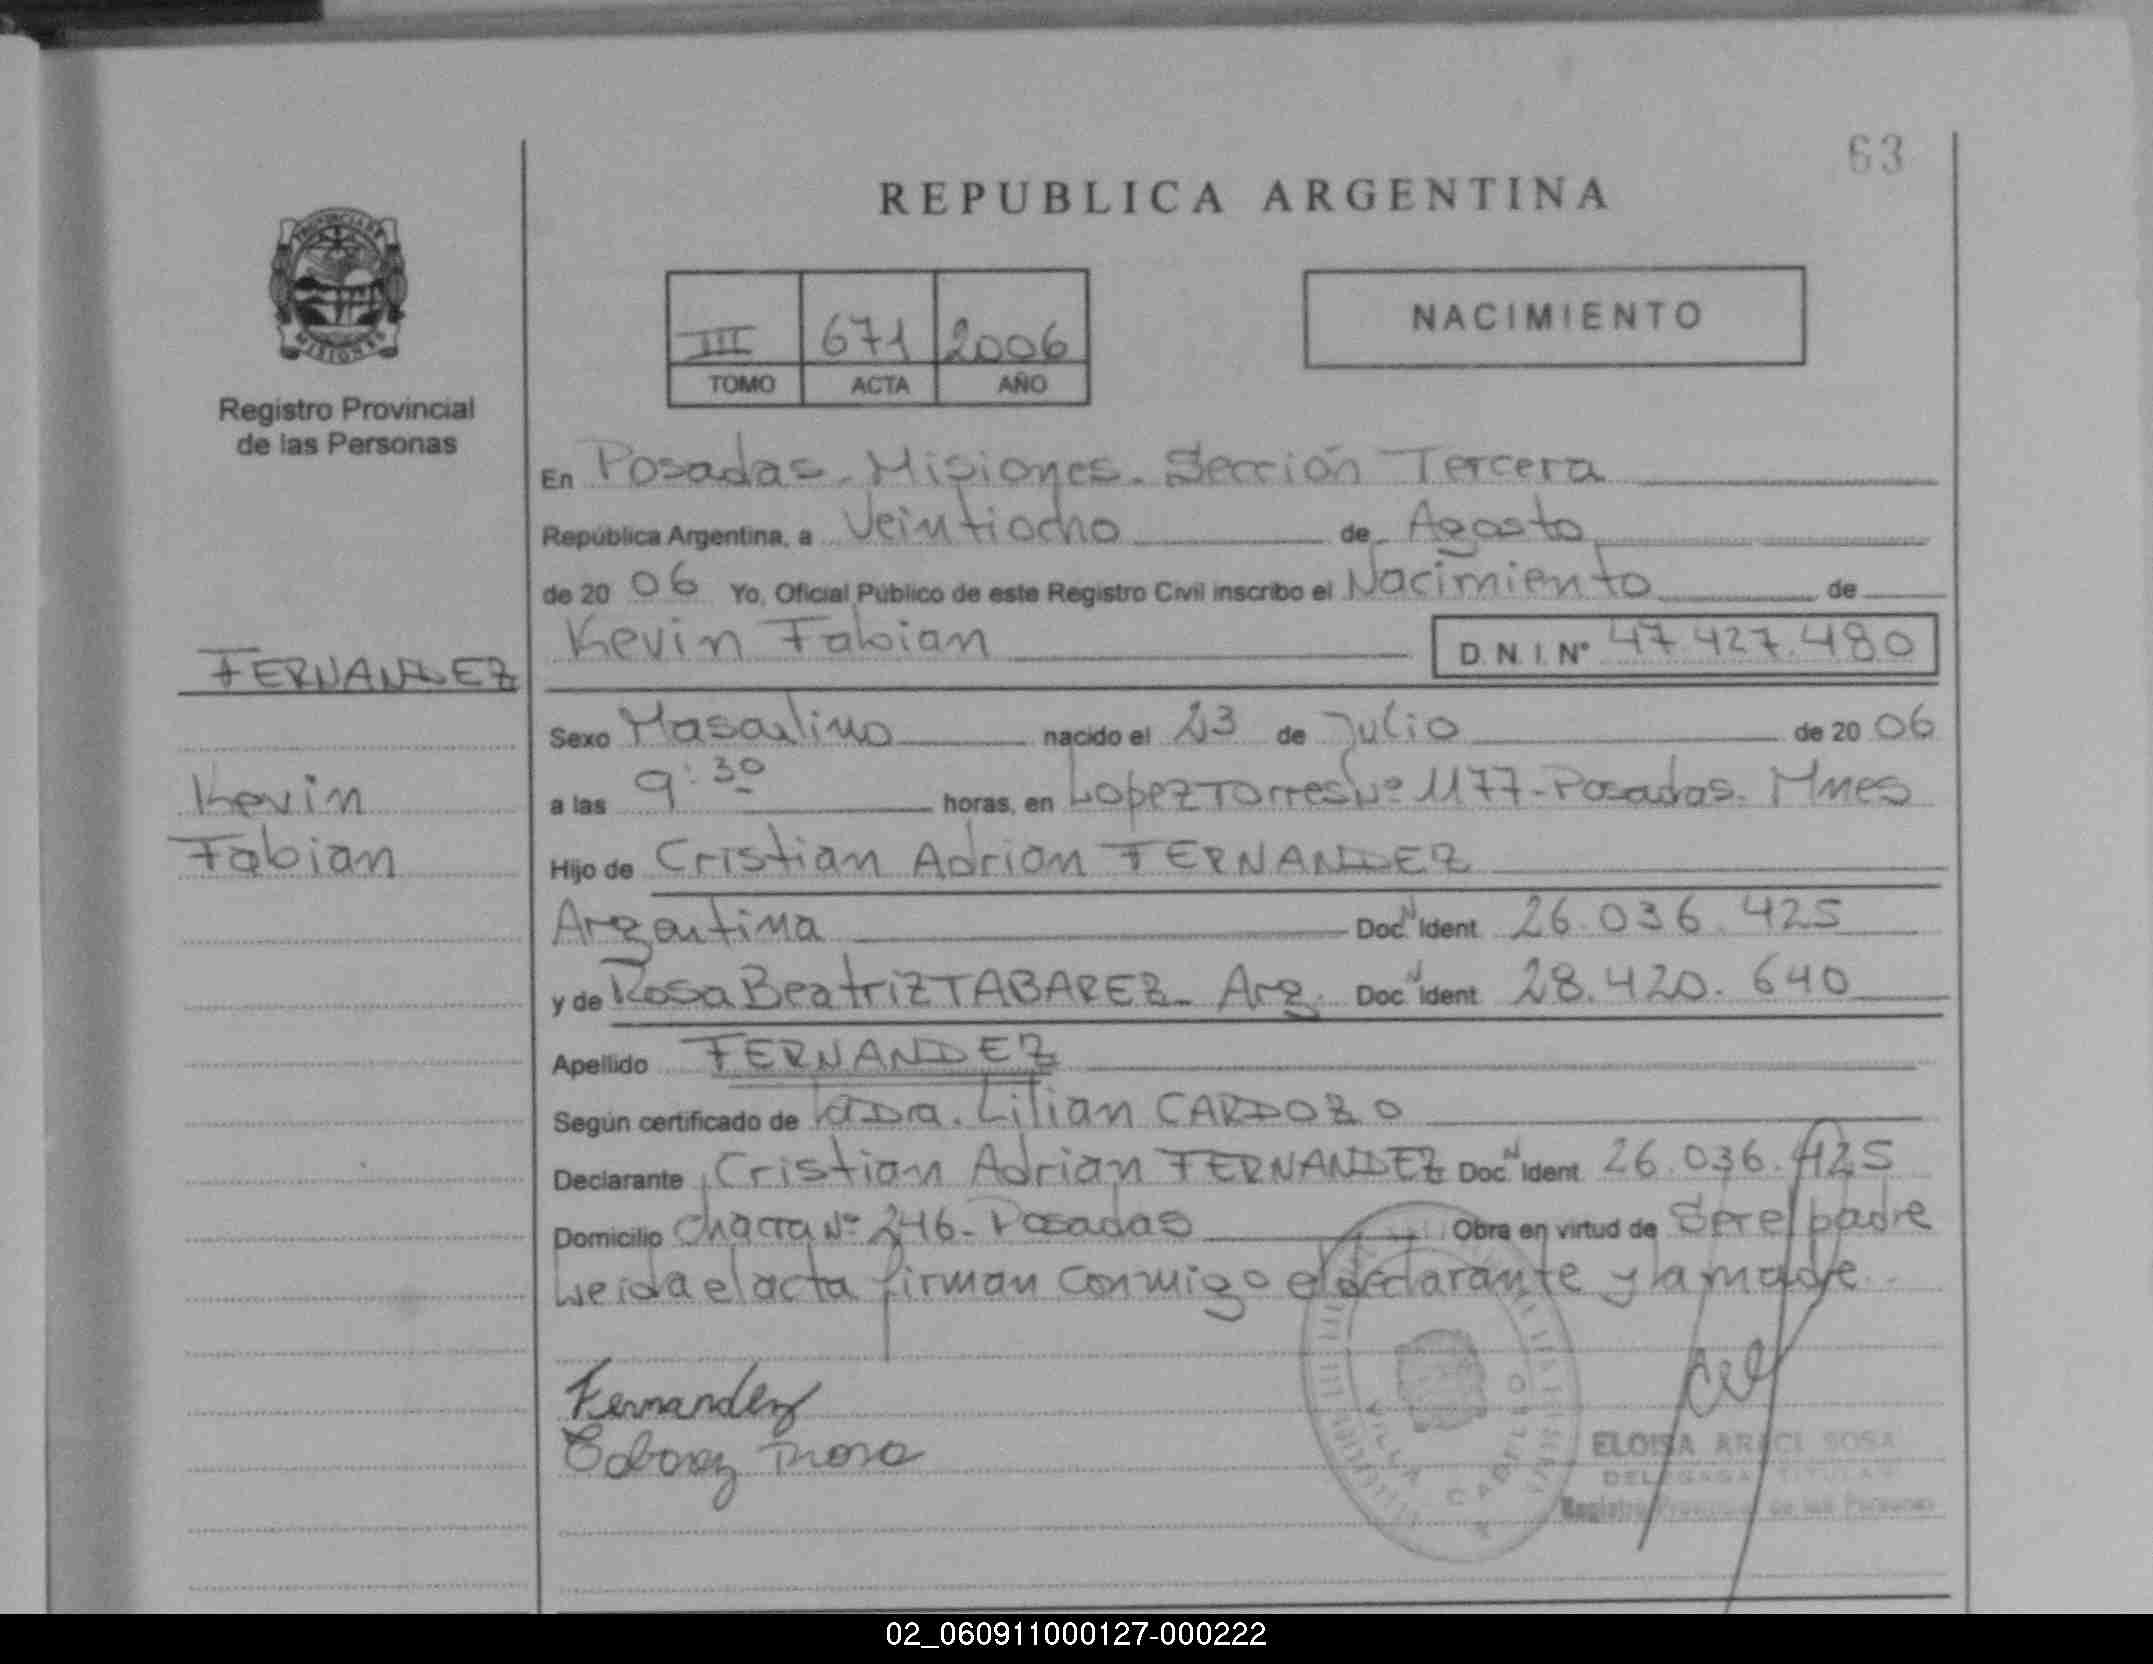 63
REPUBLICA ARGENTINA
PROVINCIA DE
MISIONES
Registro Provincial
de las Personas
III 671 2006
TOMO ACTA AÑO
NACIMIENTO
En Posadas - Misiones - Sección Tercera
República Argentina, a Veintiocho de Agosto
de 20 06 Yo, Oficial Público de este Registro Civil inscribo el Nacimiento de
FERNANDEZ
Kevin
Fabian
Kevin Fabian D.N.I. Nº 47.427.480
Sexo Masculino nacido el 23 de Julio de 20 06
a las 9:30 horas, en Lopez Torres Nº 1177 - Posadas - Mnes
Hijo de Cristian Adrian FERNANDEZ
Argentina Doc. N Ident 26.036.425
y de Rosa Beatriz TABAREZ - Arg. Doc. N Ident 28.420.640
Apellido FERNANDEZ
Según certificado de la Dra. Lilian CARDOZO
Declarante Cristian Adrian FERNANDEZ Doc. N Ident 26.036.425
Domicilio Chacra Nº 246 - Posadas Obra en virtud de Ser el padre
Leida el acta firman conmigo el declarante y la madre
Fernandez
Tabarez Rosa
VILLA CABELLO
ELOISA ARACI SOSA
DELEGADA TITULAR
Registro Provincial de las Personas
02_060911000127-000222